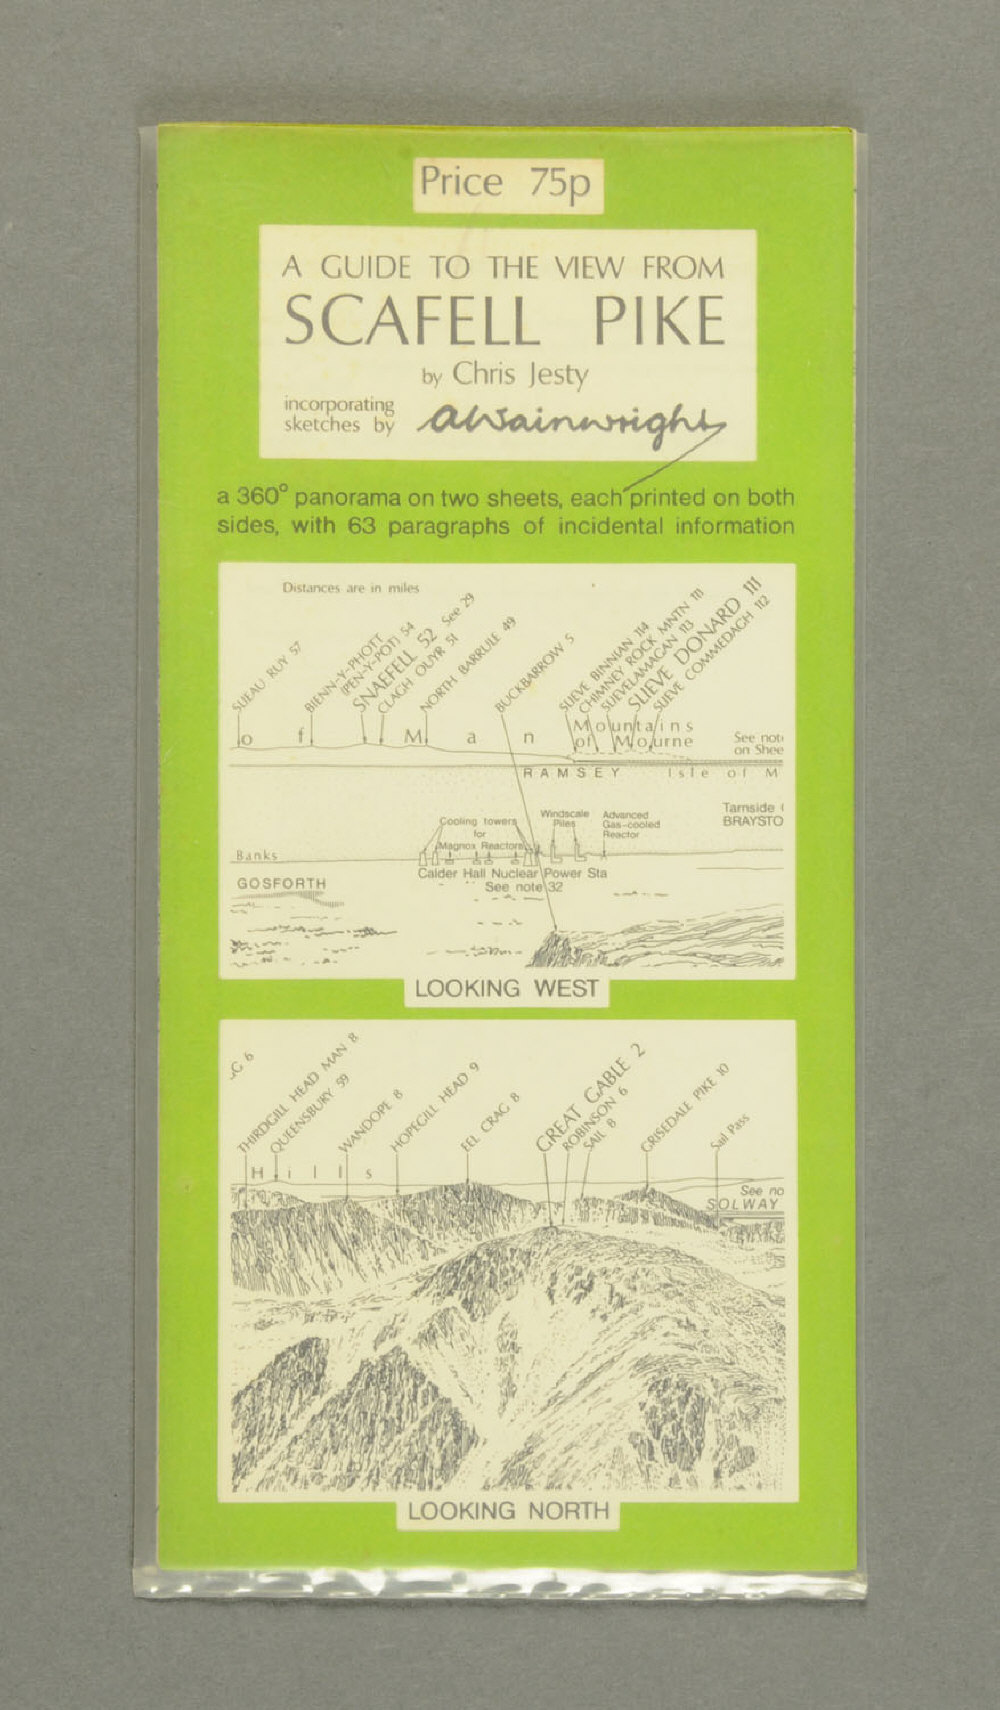 Price 75p
A GUIDE TO THE VIEW FROM
SCAFELL PIKE
by Chris Jesty
incorporating
sketches by AWainwright
a 360° panorama on two sheets, each printed on both
sides, with 63 paragraphs of incidental information
Distances are in miles
SLIEAU RUY 57
BIENN-Y-PHOTT
(PEN-Y-POT) 54
SNAEFELL 52 See 29
CLAGH OUYR 51
NORTH BARRULE 49
BUCKBARROW 5
SLIEVE BINNIAN 114
CHIMNEY ROCK MNTN 111
SLIEVELAMAGAN 113
SLIEVE DONARD 111
SLIEVE COMMEDAGH 112
o f M a n
Mountains
of Mourne
See not
on Shee
RAMSEY Isle of M
Cooling towers
for
Magnox Reactors
Windscale
Piles
Advanced
Gas-cooled
Reactor
Tarnside
BRAYSTO
Banks
Calder Hall Nuclear Power Sta
See note 32
GOSFORTH
LOOKING WEST
G 6
THIRDGILL HEAD MAN 8
QUEENSBURY 59
WANDOPE 8
HOPEGILL HEAD 9
EEL CRAG 8
GREAT GABLE 2
ROBINSON 6
SAIL 8
GRISEDALE PIKE 10
Sail Pass
Hills
See no
SOLWAY
LOOKING NORTH